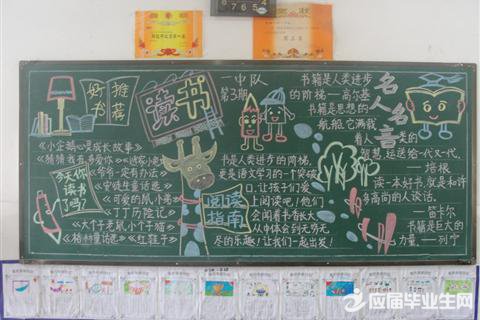 7654
好书
推荐
《小企鹅心灵成长故事》
《猜猜我有多爱你》
《爷爷一定有办法》
《安徒生童话选》
《可爱的鼠小弟》
《丁丁历险记》
《大个子老鼠小个子猫》
《格林童话选》
《红鞋子》
今天你读书了吗?
读书
一中队
第3期
书是人类进步的阶梯,
更是语文学习的一个突破
口,让孩们爱
上阅读吧!他们
会闻着书香长大
从中体会到无穷无
尽的乐趣!让我们一起出发!
阅读指南
名人名言
书籍是人类进步
的阶梯—高尔基
书籍是思想的
航船,它满载
着人类的
智慧,运送给一代又一代。
—培根
读一本好书,就是和许
多高尚的人谈话。
—笛卡尔
书籍是巨大的
力量。—列宁
应届毕业生网
YJBYS.COM